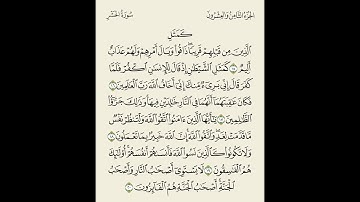 الجزء الثامن والعشرون
سورة الحشر
كَمَثَلِ
الَّذِينَ مِن قَبْلِهِمْ قَرِيبًا ذَاقُوا وَبَالَ أَمْرِهِمْ وَلَهُمْ عَذَابٌ
أَلِيمٌ ١٥ كَمَثَلِ الشَّيْطَانِ إِذْ قَالَ لِلْإِنسَانِ اكْفُرْ فَلَمَّا
كَفَرَ قَالَ إِنِّي بَرِيءٌ مِّنكَ إِنِّي أَخَافُ اللَّهَ رَبَّ الْعَالَمِينَ ١٦
فَكَانَ عَاقِبَتَهُمَا أَنَّهُمَا فِي النَّارِ خَالِدَيْنِ فِيهَا وَذَٰلِكَ جَزَاءُ
الظَّالِمِينَ ١٧ يَا أَيُّهَا الَّذِينَ آمَنُوا اتَّقُوا اللَّهَ وَلْتَنظُرْ نَفْسٌ
مَّا قَدَّمَتْ لِغَدٍ وَاتَّقُوا اللَّهَ إِنَّ اللَّهَ خَبِيرٌ بِمَا تَعْمَلُونَ ١٨
وَلَا تَكُونُوا كَالَّذِينَ نَسُوا اللَّهَ فَأَنسَاهُمْ أَنفُسَهُمْ أُولَٰئِكَ
هُمُ الْفَاسِقُونَ ١٩ لَا يَسْتَوِي أَصْحَابُ النَّارِ وَأَصْحَابُ
الْجَنَّةِ أَصْحَابُ الْجَنَّةِ هُمُ الْفَائِزُونَ ٢٠